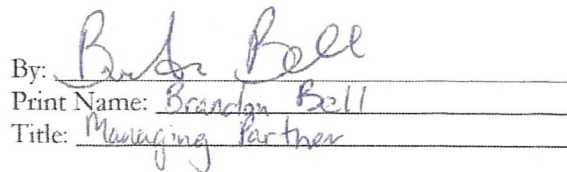 By: Brandon Bell
Print Name: Brandon Bell
Title: Managing Partner